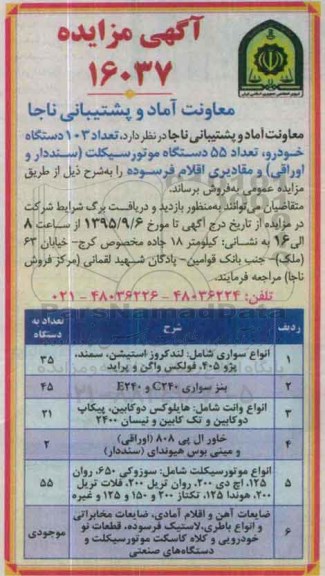 آگهی مزایده
۱۶۰۳۷
معاونت آماد و پشتیبانی ناجا
معاونت آماد و پشتیبانی ناجا در نظر دارد، تعداد ۱۰۳ دستگاه
خودرو، تعداد ۵۵ دستگاه موتورسیکلت (سنددار و
اوراقی) و مقادیری اقلام فرسوده را به‌شرح ذیل از طریق
مزایده عمومی به‌فروش برساند.
متقاضیان می‌توانند به‌منظور بازدید و دریافت برگ شرایط شرکت
در مزایده از تاریخ درج آگهی تا مورخ ۱۳۹۵/۹/۶ از ساعت ۸
الی ۱۶ به نشانی: کیلومتر ۱۸ جاده مخصوص کرج- خیابان ۶۳
(ملک)- جنب بانک قوامین- پادگان شهید لقمانی (مرکز فروش
ناجا) مراجعه فرمایند.
تلفن: ۴۸۰۳۶۲۲۴ - ۴۸۰۳۶۲۲۶ - ۰۲۱
ردیف شرح تعداد به دستگاه
۱ انواع سواری شامل: لندکروز استیشن، سمند،
پژو ۴۰۵، فولکس واگن و پراید ۳۵
۲ بنز سواری C۲۴۰ و E۲۴۰ ۴۵
۳ انواع وانت شامل: هایلوکس دوکابین، پیکاپ
دوکابین و تک کابین و نیسان ۲۴۰۰ ۲۱
۴ خاور ال پی ۸۰۸ (اوراقی)
و مینی بوس هیوندای (سنددار) ۲
۵ انواع موتورسیکلت شامل: سوزوکی ۶۵۰، روان
۱۲۵، اچ دی ۲۰۰، روان تریل ۲۰۰، فلات تریل
۲۰۰، هوندا ۱۲۵، تکتاز ۲۰۰ و ۱۵۰ و ۱۲۵ و غیره ۵۵
۶ ضایعات آهن و اقلام آمادی، ضایعات مخابراتی
و انواع باطری، لاستیک فرسوده، قطعات نو
خودرویی و کلاه کاسکت موتورسیکلت و
دستگاه‌های صنعتی موجودی